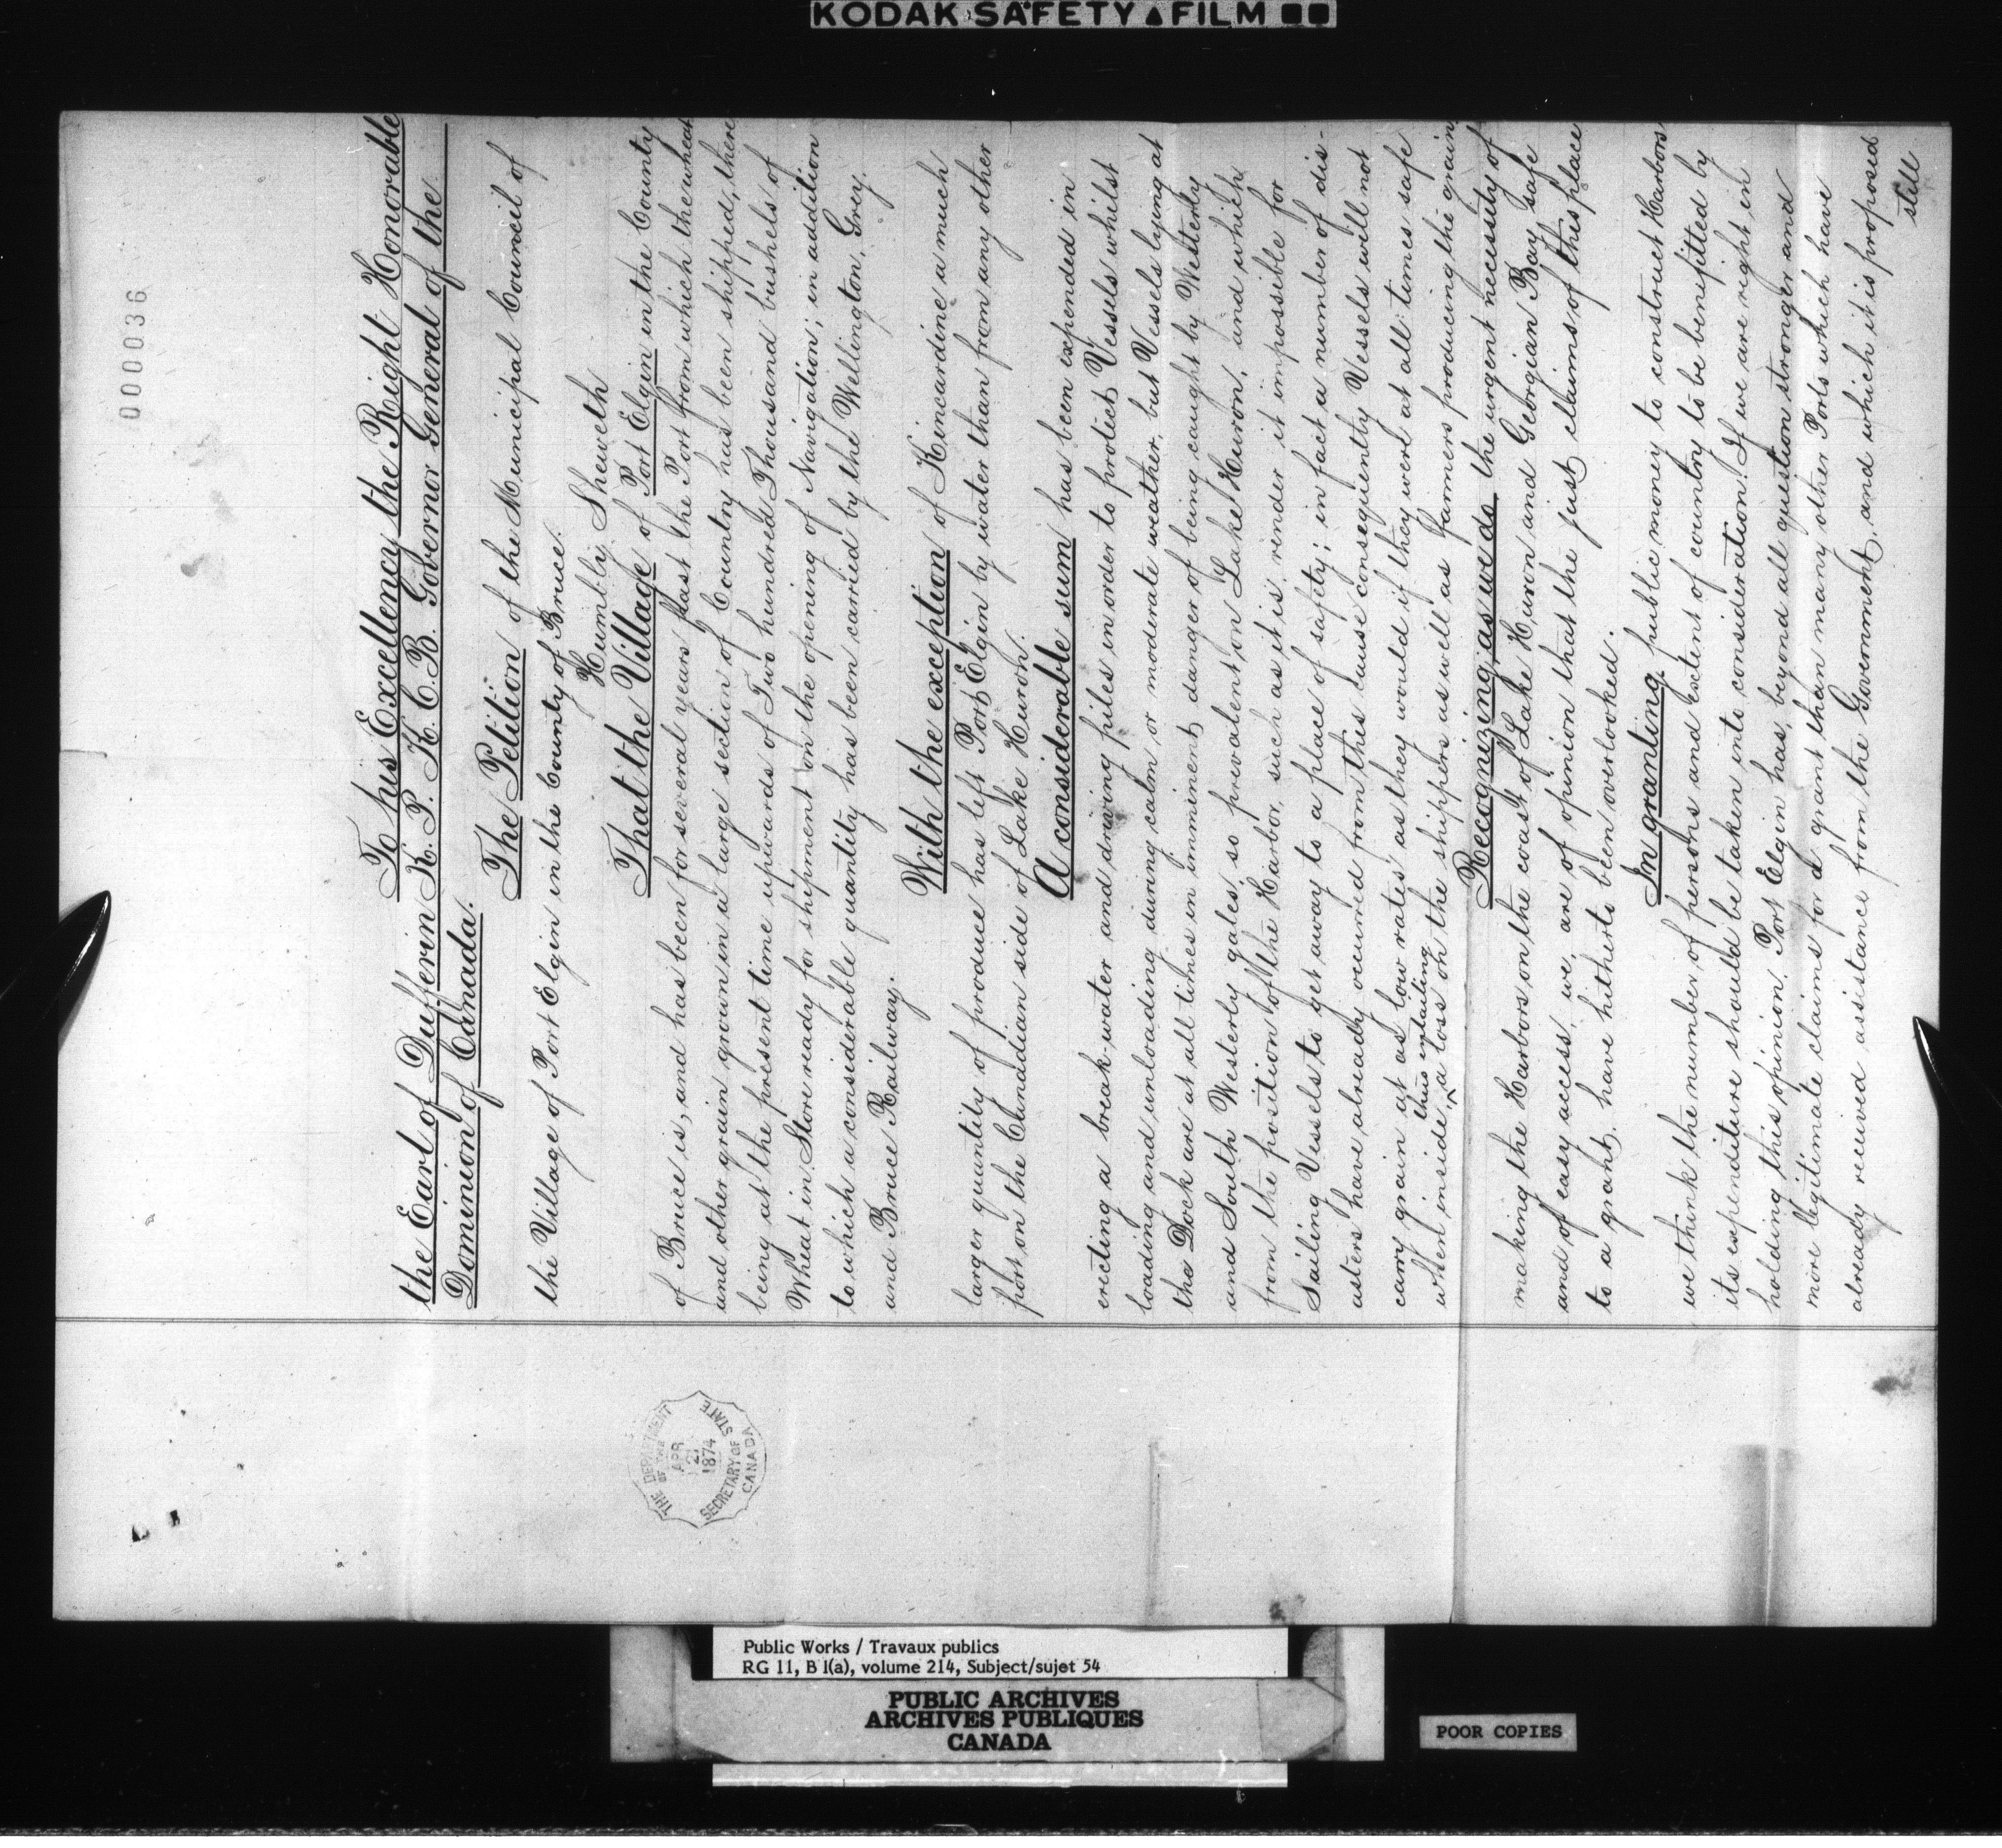 KODAK SAFETY FILM
000036
To his Excellency the Right Honorable
the Earl of Dufferin K. P. K. C. B. Governor General of the
Dominion of Canada.
The Petition of the Municipal Council of
the Village of Port Elgin in the County of Bruce.
Humbly Sheweth
That the Village of Port Elgin in the County
of Bruce is, and has been for several years past the Port from which the wheat
and other grain grown in a large section of Country has been shipped, there
being at the present time upwards of Two hundred Thousand bushels of
Wheat in Store ready for shipment on the opening of Navigation; in addition
to which a considerable quantity has been carried by the Wellington, Grey,
and Bruce Railway.
With the exception of Kincardine a much
larger quantity of produce has left Port Elgin by water than from any other
port on the Canadian side of Lake Huron.
A considerable sum has been expended in
erecting a break-water and driving piles in order to protect Vessels whilst
loading and unloading during calm or moderate weather, but Vessels lying at
the Dock are at all times in imminent danger of being caught by Westerly
and South Westerly gales, so prevalent on Lake Huron, and which
from the position of the Harbor, such as it is, render it impossible for
Sailing Vessels to get away to a place of safety; in fact a number of dis-
asters have already occurred from this cause consequently Vessels will not
carry grain at as low rates as they would if they were at all times safe
when inside, thus entailing a loss on the shippers as well as farmers producing the grain
Recognizing as we do the urgent necessity of
making the Harbors on the coast of Lake Huron and Georgian Bay safe
and of easy access, we are of opinion that the just claims of this place
to a grant, have hitherto been overlooked.
In granting public money to construct Harbors
we think the number of persons and extent of country to be benefitted by
its expenditure should be taken into consideration. If we are right in
holding this opinion, Port Elgin has, beyond all question stronger and
more legitimate claims for a grant than many other Ports which have
already received assistance from the Government, and which it is proposed
still
THE DEPARTMENT
OF THE
APR
21
1874
SECRETARY OF STATE
CANADA
Public Works / Travaux publics
RG 11, B 1(a), volume 214, Subject/sujet 54
PUBLIC ARCHIVES
ARCHIVES PUBLIQUES
CANADA
POOR COPIES